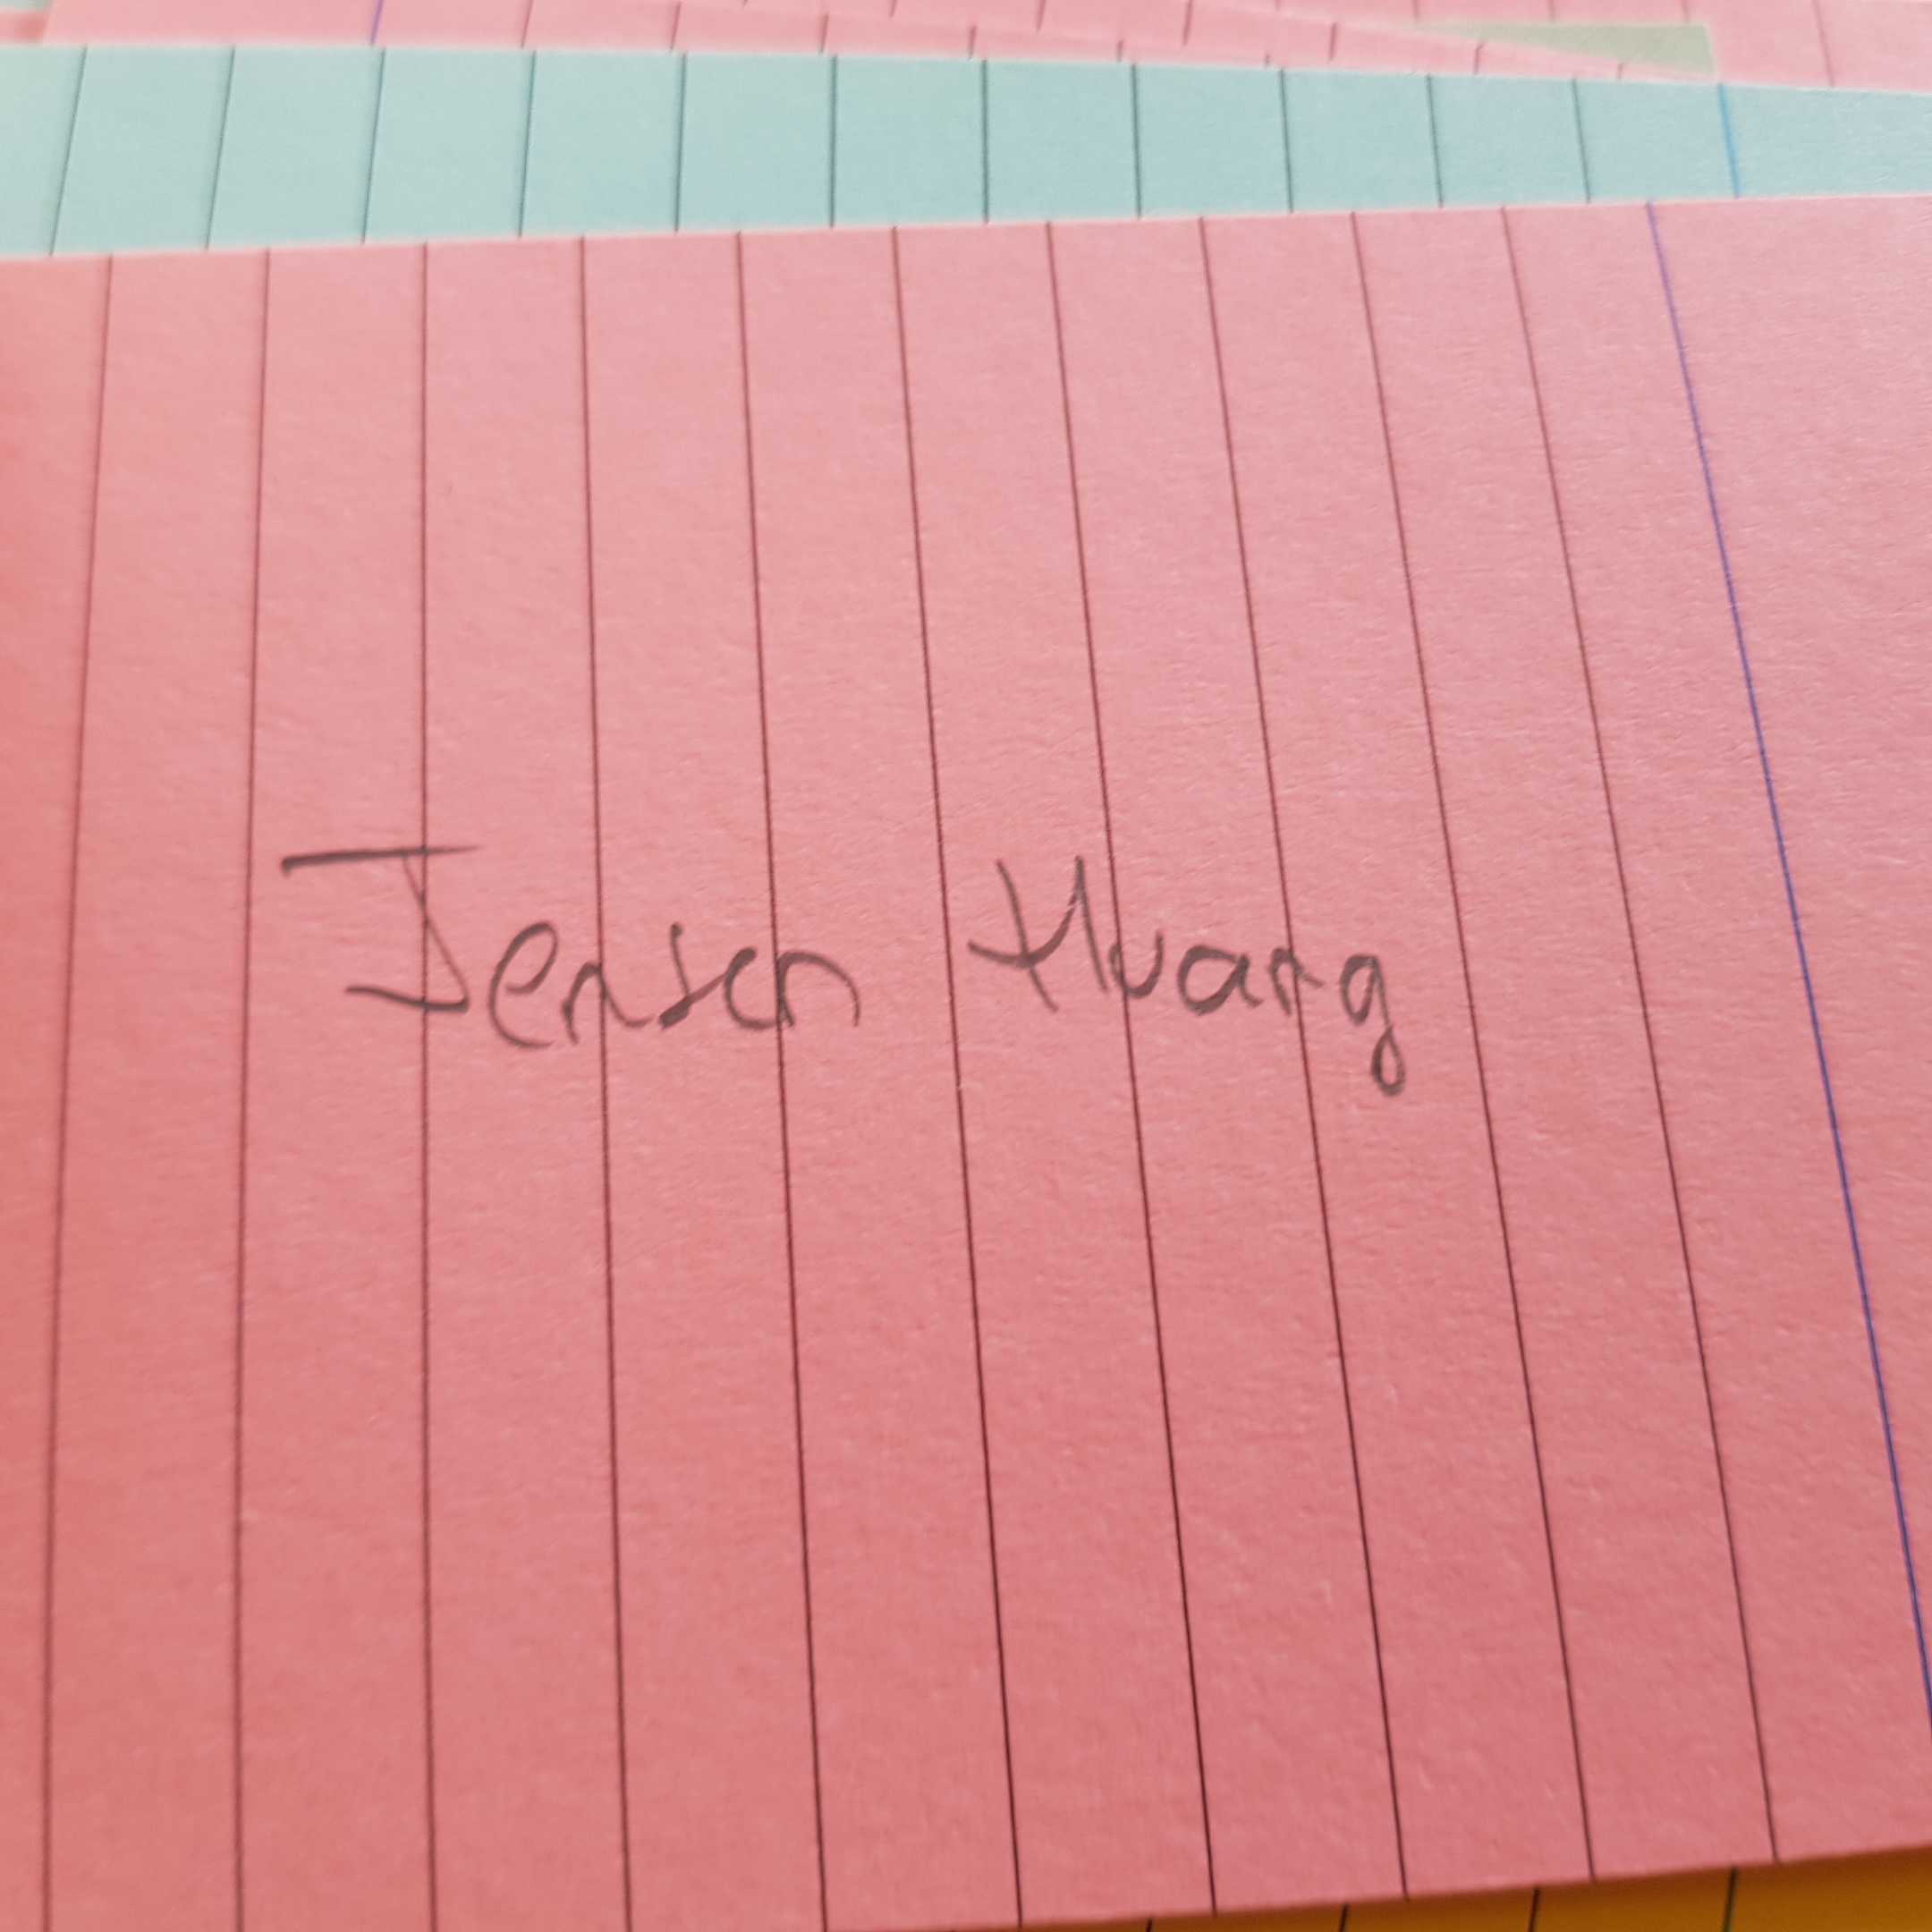 Jensen Huang